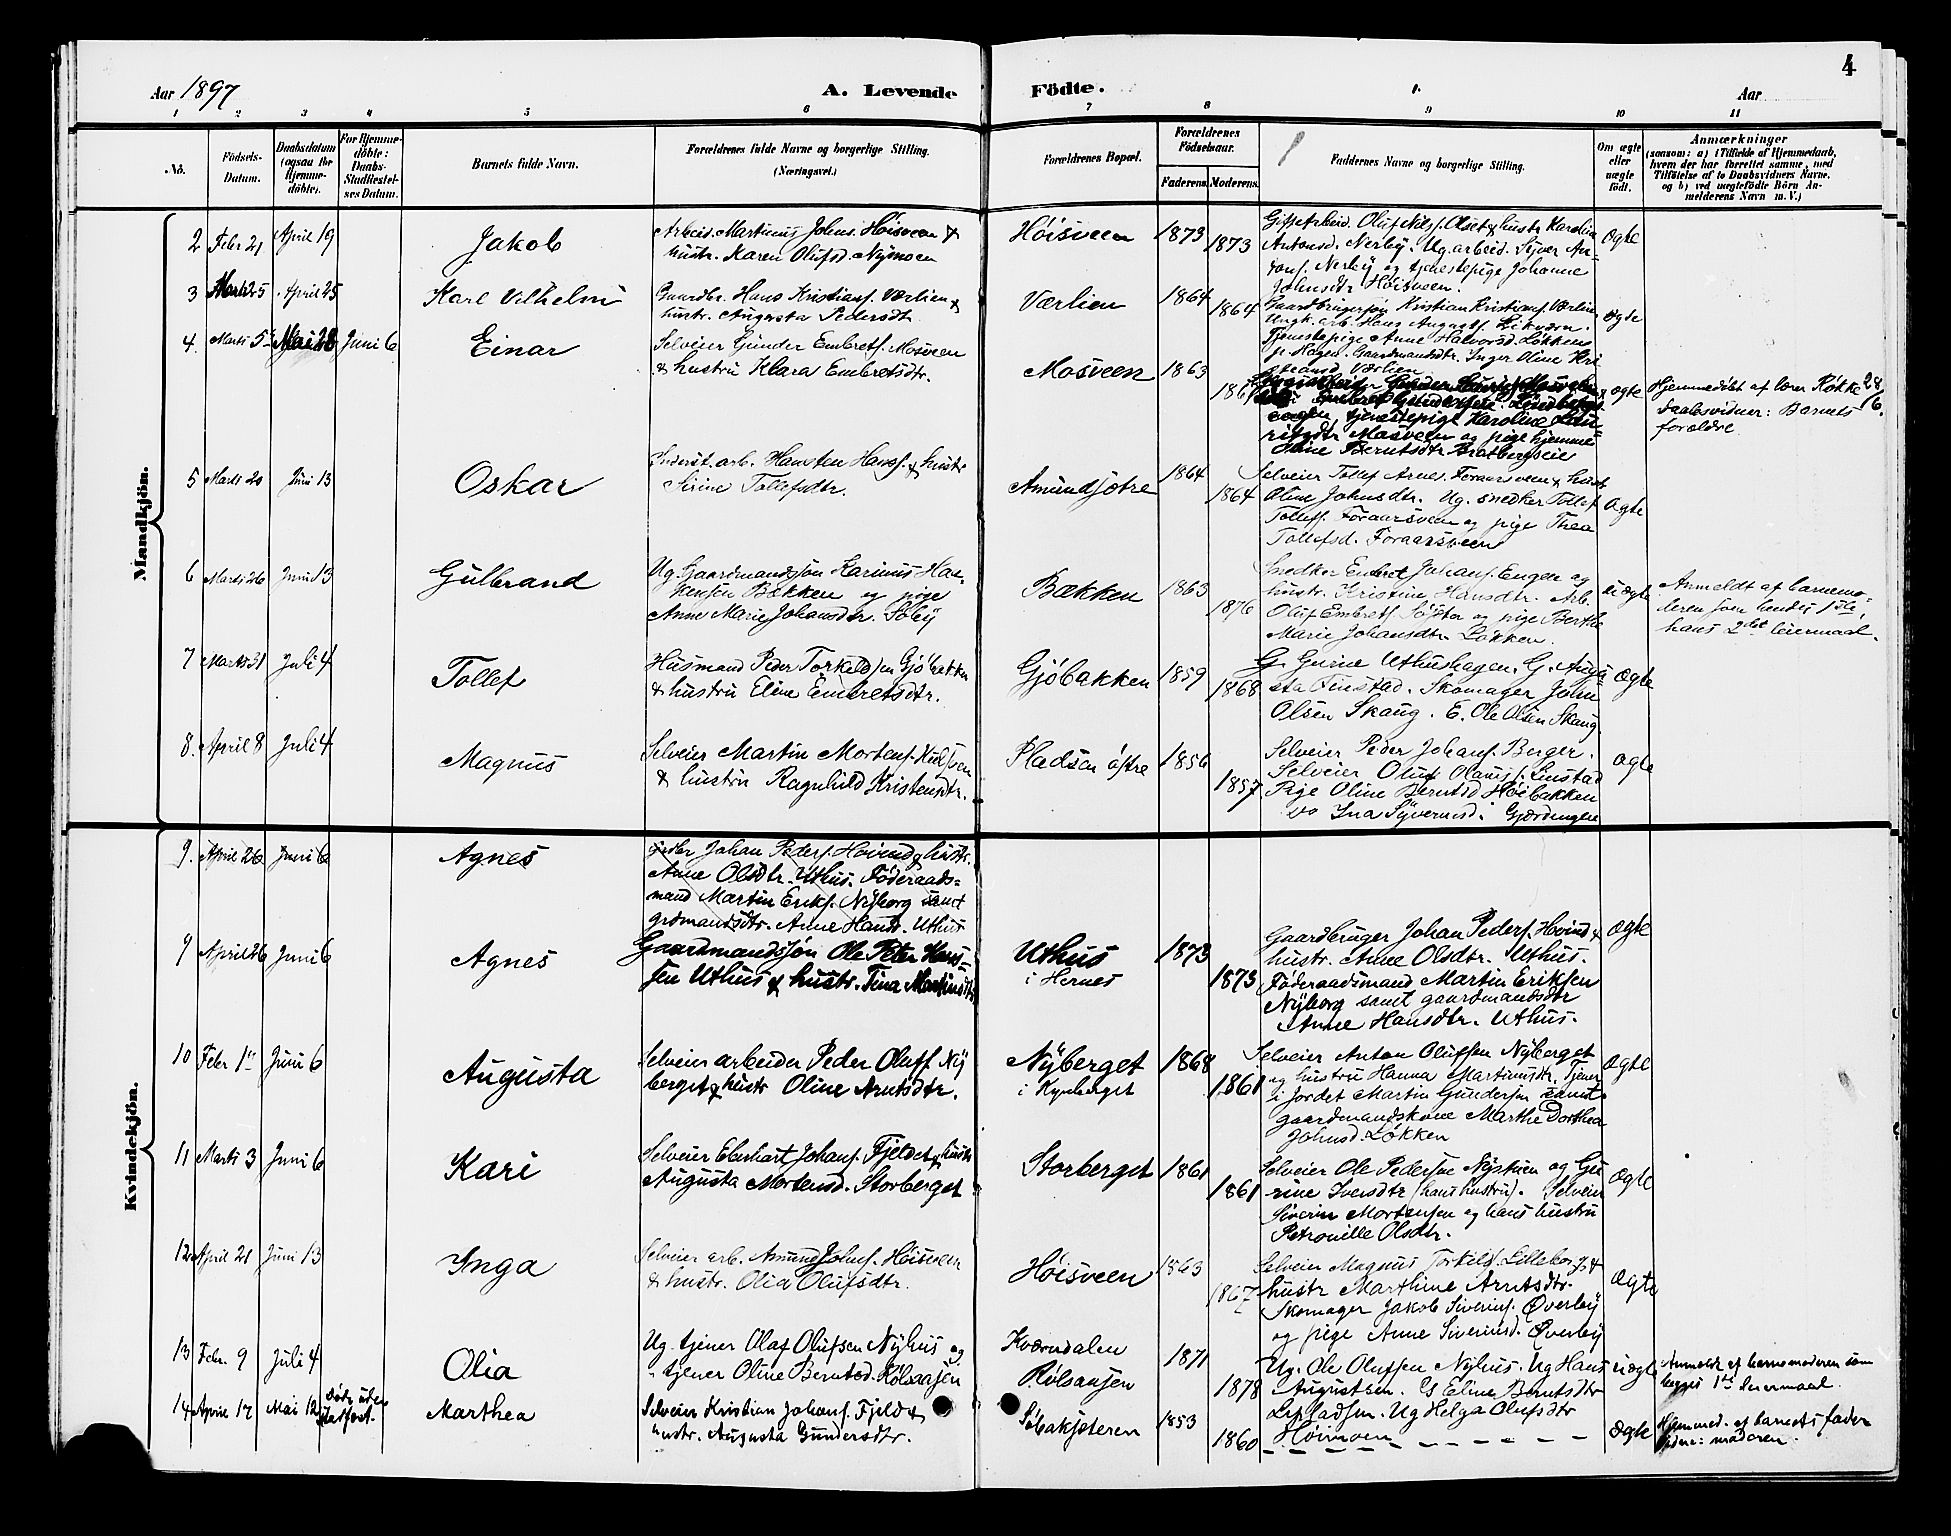 4
Aar 1897
A. Levende Födte.
1.
Aar
1 2 3 4 5 6 7 8 9 10 11
No.
Födsels-
Datum.
Daabsdatum
(ogsaa for
Hjemme-
döbte).
For Hjemme-
döbte:
Daabs-
Stadfæstel-
ses Datum.
Barnets fulde Navn.
Forældrenes fulde Navne og borgerlige Stilling.
(Næringsvei.)
Forældrenes Bopæl.
Forældrenes
Födselsaar.
Faderens. Moderens.
Faddernes Navne og borgerlige Stilling.
Om ægte
eller
uægte
födt.
Anmærkninger
(saasom: a) i Tilfælde af Hjemmedaab,
hvem der har forrettet samme, med
Tilföielse af to Daabsvidners Navne,
og b) ved uægtefödte Börn An-
melderens Navn m. V.)
Mandkjön.
2 Febr 21 April 19
Jakob
Arbeid. Martinus Johns. Høisveen &
hustr. Karen Olufsd. Nymoen
Høisveen
1873
1873
Gift arbeid. Oluf Nilss. Olset & hustr Karoline
Antonsd. Nerby. Ug. arbeid. Syver An-
tons. Nerby og tjenestepige Johanne
Johnsdtr Høisveen.
Ægte
3 Marts 25 April 25
Karl Vilhelm
Gaardbr. Hans Kristians. Værlien &
hustr. Augusta Pedersdt.
Værlien
1864
1864
Gaardbrugersøn Kristian Kristians. Værlien
Ungk. arb. Hans Augusts.
Tjenestepige Anne Halvorsd. Løkken
p. Hagen. Gaardmandsdtr. Inger Oline Kri
stiansd Værlien
Ægte
4. Marts 5te Mai 28 Juni 6
Einar
Selveier Gunder Embrets. Mosveen
& hustru Klara Embretsdtr.
Mosveen
1863
1861
tjenestepige Karoline
Mosveen og pige hjemme
Oline Berntsdtr Bratbergseie
ægte
Hjemmedøbt af lærer Røkke 28/6.
Daabsvidner: Barnets
forældre
5 Marts 20 Juni 13
Oskar
Inderst. arb. Hansten Hanss. & hustr
Sirine Tollefsdtr.
Amundsætre
1864
1864
Selveier Tollef Arnes. Foraarsveen & hustr
Oline Johnsdtr. Ug. snedker Tollef
Tollefs. Foraarsveen og pige Thea
Tollefsd. Foraarsveen
Ægte
6 Marts 26 Juni 13
Gulbrand
Ug. Gaardmandssøn Karinus Han-
sen Bækken og pige
Anne Marie Johansdtr. Søby
Bækken
1863
1876
Snedker Embret Johans. Enger og
hustr. Kristine Hansdtr. Arb.
Oluf Embrets. Søster og pige Berthe
Marie Johansdtr Løkken.
uægte
Anmeldt af barnemo-
deren som hendes 1ste,
hans 2det leiermaal.
7 Marts 31 Juli 4
Tollef
Husmand Peder Torkeldsen Gjøbakken
& hustru Eline Embretsdtr.
Gjøbakken
1859
1868
G. Gurine Uthushagen, G. Augu
sta Finstad. Skomager John
Olsen Skaug. E. Ole Olsen Skaug.
Ægte
8. April 8 Juli 4
Magnus
Selveier Martin Mortens.
& hustru Ragnhild Kristensdtr.
Pladsen østre
1856
1857
Selveier Peder Johans. Berger.
Selveier Oluf Olaus. Linstad
Pige Oline Berntsd Høibakken
do Ina Syversd. Gjerdingen
ægte
Kvindekjön.
9. April 26 Juni 6
Agnes
grdbr Johan Peders. Hovind & hustr.
Anne Olsdtr. Uthus. Føderaads-
mand Martin Eriks. Nyborg samt
grdmandsdtr. Anne Hansd. Uthus
9 April 26 Juni 6
Agnes
Gaardmandssøn Ole Peter Han-
sen Uthus & hustr. Tina Martinsdtr
Uthus
i Hernes
1873
1873
Gaardbruger Johan Peders. Hovind &
hustr. Anne Olsdtr. Uthus.
Føderaadsmand Martin Eriksen
Nyborg samt gaardmandsdtr
Anne Hansdtr. Uthus.
ægte
10 Febr 1ste Juni 6
Augusta
Selveier arbeider Peder Olufs. Ny
berget & hustr Oline Arntsdtr.
Nyberget
i Kynberget
1868
1861
Selveier Anton Olufsen Nyberget
og hustru Hanna Martinusdtr. Tjener
i Jordet Martin Gundersen samt
gaardmandskone Marthe Dorthea
Johnsd. Løkken
Ægte
11 Marts 3 Juni 6
Kari
Selveier Eberhart Johans. Fjeldet & hustr
Augusta Mortensd. Storberget
Storberget
1861
1861
Selveier Ole Pedersen Nystuen og Gu
rine Iversdtr (hans hustru). Selveier
Siverin Mortensen og hans hustru
Petronille Olsdtr.
Ægte
12 April 21 Juni 13
Inga
Selveier arb. Amund Johns. Høisveen
& hustr. Olia Olufsdtr.
Høisveen
1863
1867
Selveier Magnus Torkilds. Lilleborg &
hustr Marthine Arntsdtr.
Skomager Jakob Siverins. Øverby
og pige Anne Siverinsd. Øverby
Ægte
13 Febr. 9 Juli 4
Olia
Ug. tjener Olaf Olufsen Nyhus og
tjener Oline Berntsd. Rølsaasen
Kværndalen
Rølsaasen
1871
1878
Ug. Ole Olufsen Nyhus. Ug Hans
Augustsen. G Eline Berntsdtr
Ug Helga Olufsdtr
Høimoen
uægte
Anmeldt af barnemoderen som
begges 1ste leiermaal.
14 April 17 Mai 12 Døde uden Stadfæst.
Marthea
Selveier Kristian Johans. Fjeld &
hustr. Augusta Gundersdtr.
Søbaksæteren
1853
1860
ægte
Hjemmed. af barnets fader
Vidne: moderen.